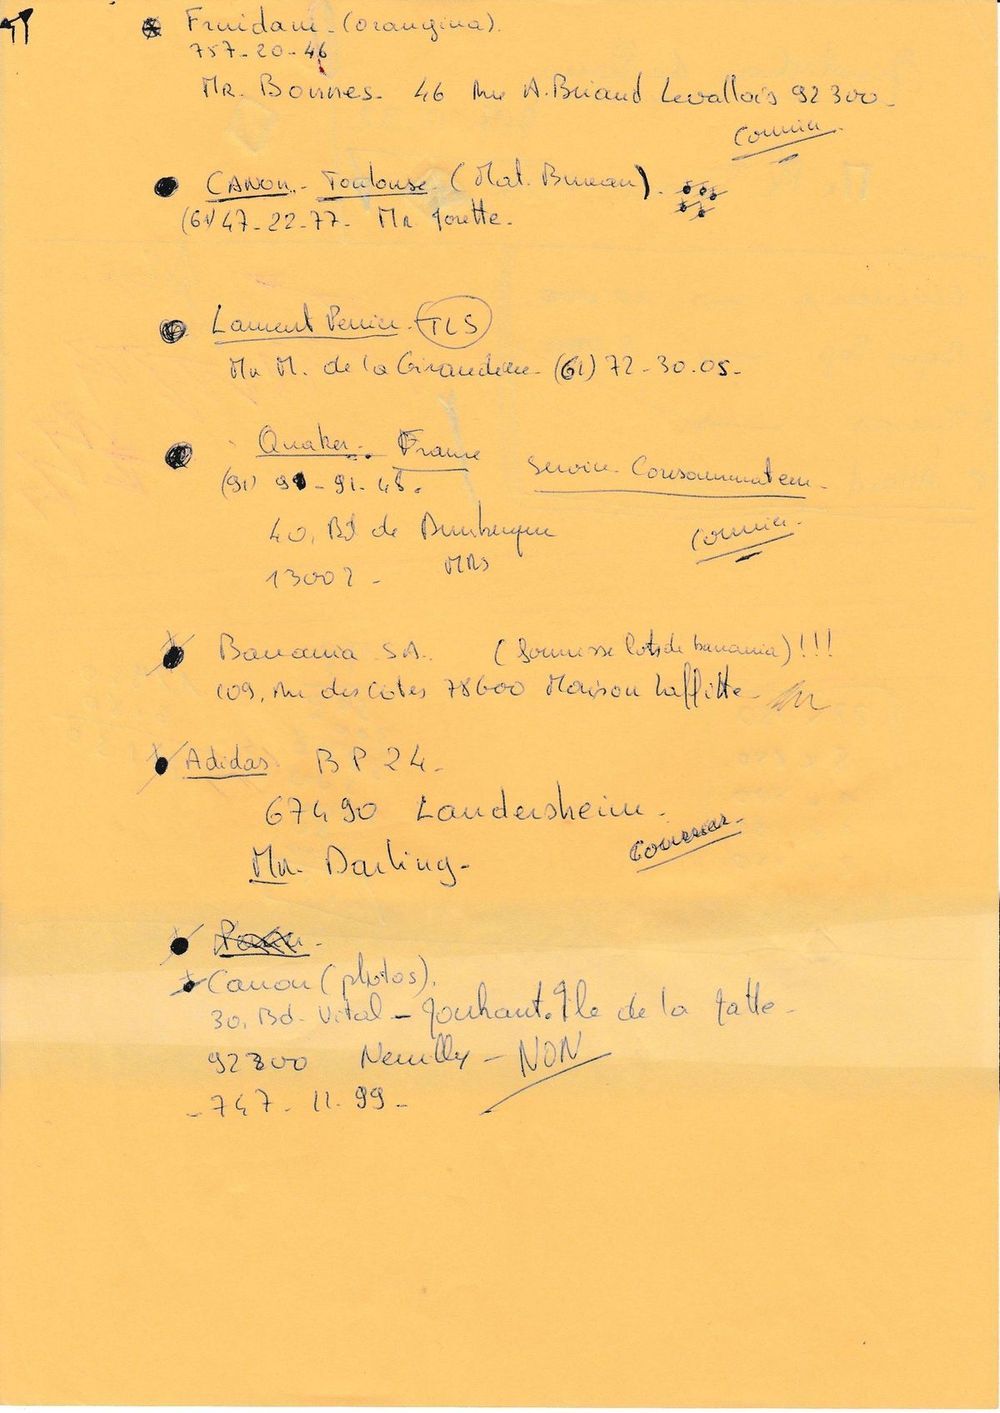 Fruidam - (orangina).
757-20-46
Mr. Bonnes - 46 rue A. Briand Levallois 92300 -
Courrier.
CANON. - Toulouse (Mat. Bureau).
(61) 47-22-77. Mr Jorette.
Laurent Perrier. TLS
Mr M. de la Giraudière - (61) 72-30.05-
Quaker - France
Service - Consommateur -
(91) 91-91-45.
40, Bd de Dunkerque
Courrier.
13002 - MRS
Banania SA. (fournisse lots de banania)!!!
109, rue des Cotes 78600 Maison Laffitte -
Adidas BP 24 -
67490 Landersheim.
Courrier.
Mr. Darling -
Canon (photos).
30, Bd. Vital - Jouhant. Ile de la Jatte -
92300 Neuilly - NON
- 747 - 11 - 99 -